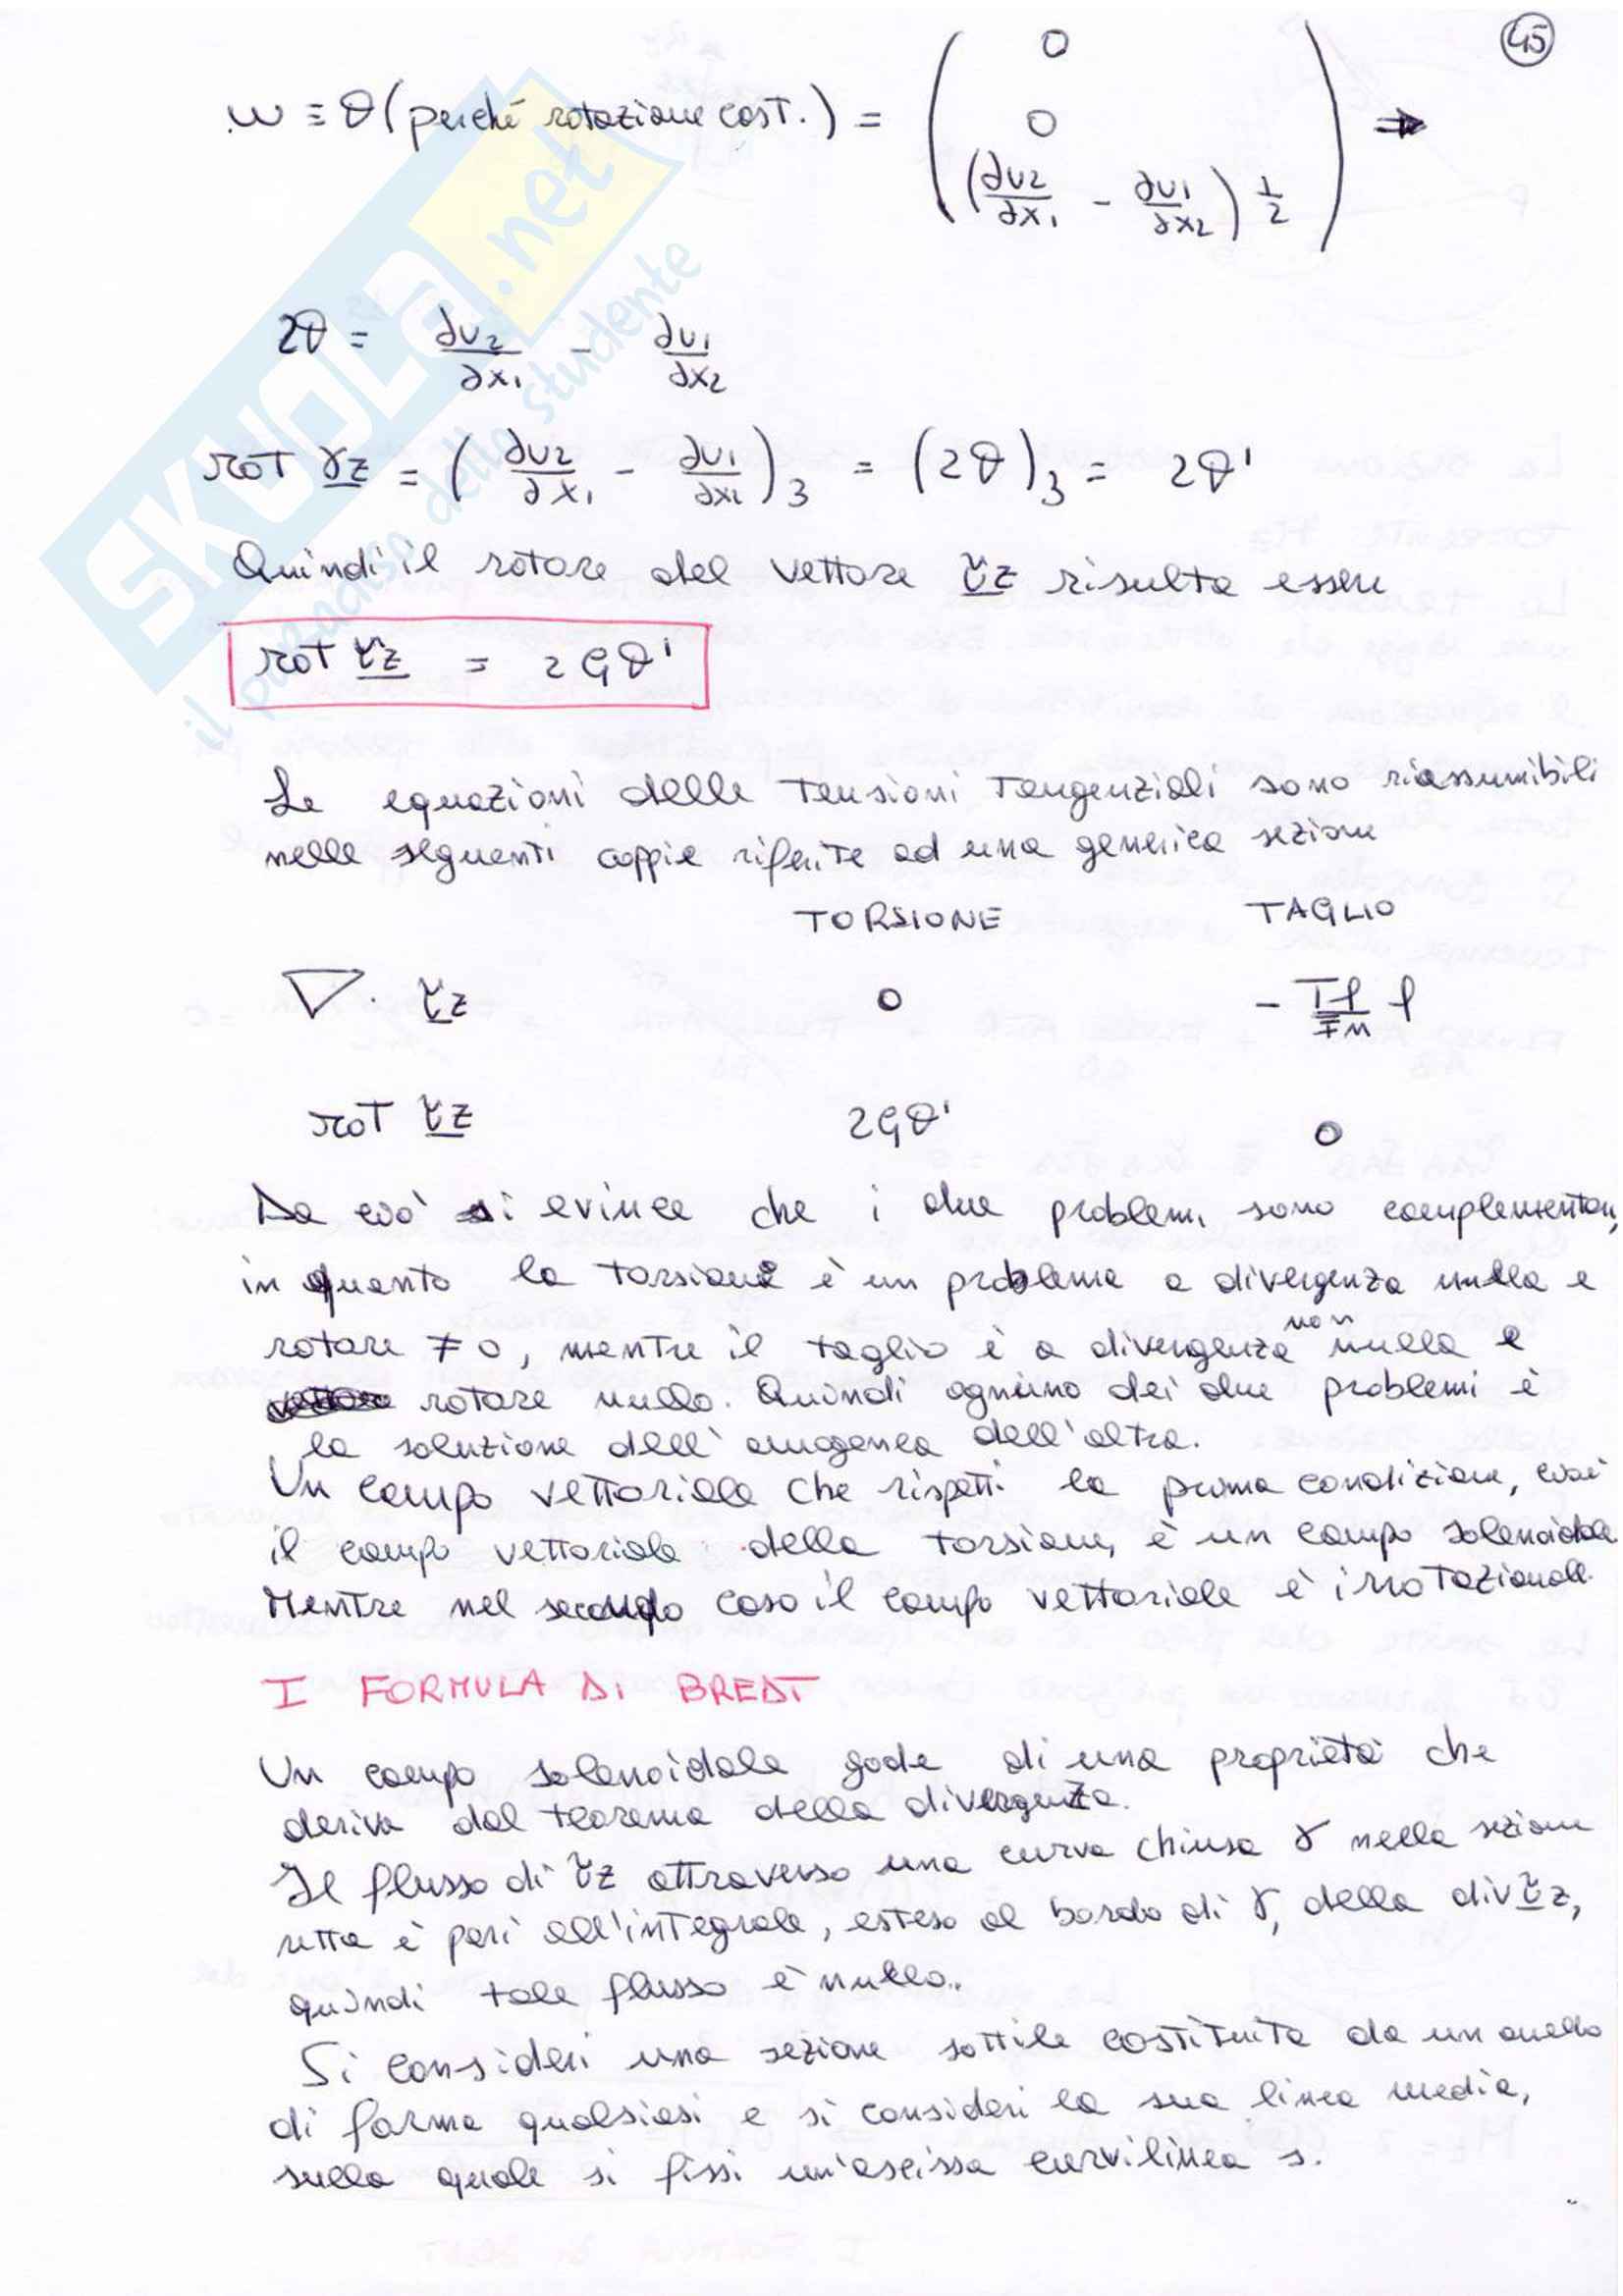 45
w ≡ θ (perché rotazione cost.) = ( 0 0 (∂v2/∂x1 - ∂v1/∂x2) 1/2 ) ⇒
2θ = ∂v2/∂x1 - ∂v1/∂x2
rot γz = (∂v2/∂x1 - ∂v1/∂x2)3 = (2θ)3 = 2θ'
Quindi il rotore del vettore τz risulta essere
rot τz = 2Gθ'
Le equazioni delle tensioni tangenziali sono riassumibili
nelle seguenti coppie riferite ad una generica sezione
TORSIONE TAGLIO
∇· τz 0
rot τz 2Gθ' 0
Da ciò si evince che i due problemi sono complementari,
in quanto la torsione è un problema a divergenza nulla e
rotore ≠ 0, mentre il taglio è a divergenza non nulla e
rotore nullo. Quindi ognuno dei due problemi è
la soluzione dell'omogenea dell'altra.
Un campo vettoriale che rispetti la prima condizione, cioè
il campo vettoriale della torsione, è un campo solenoidale.
Mentre nel secondo caso il campo vettoriale è irrotazionale.
I FORMULA DI BREDT
Un campo solenoidale gode di una proprietà che
deriva dal teorema della divergenza.
Il flusso di τz attraverso una curva chiusa γ nella sezione
retta è pari all'integrale, esteso al bordo di γ, della div τz,
quindi tale flusso è nullo.
Si consideri una sezione sottile costituita da un anello
di forma qualsiasi e si consideri la sua linea media,
sulla quale si fissi un'ascissa curvilinea s.
SKUOLA.net
il paradiso dello studente